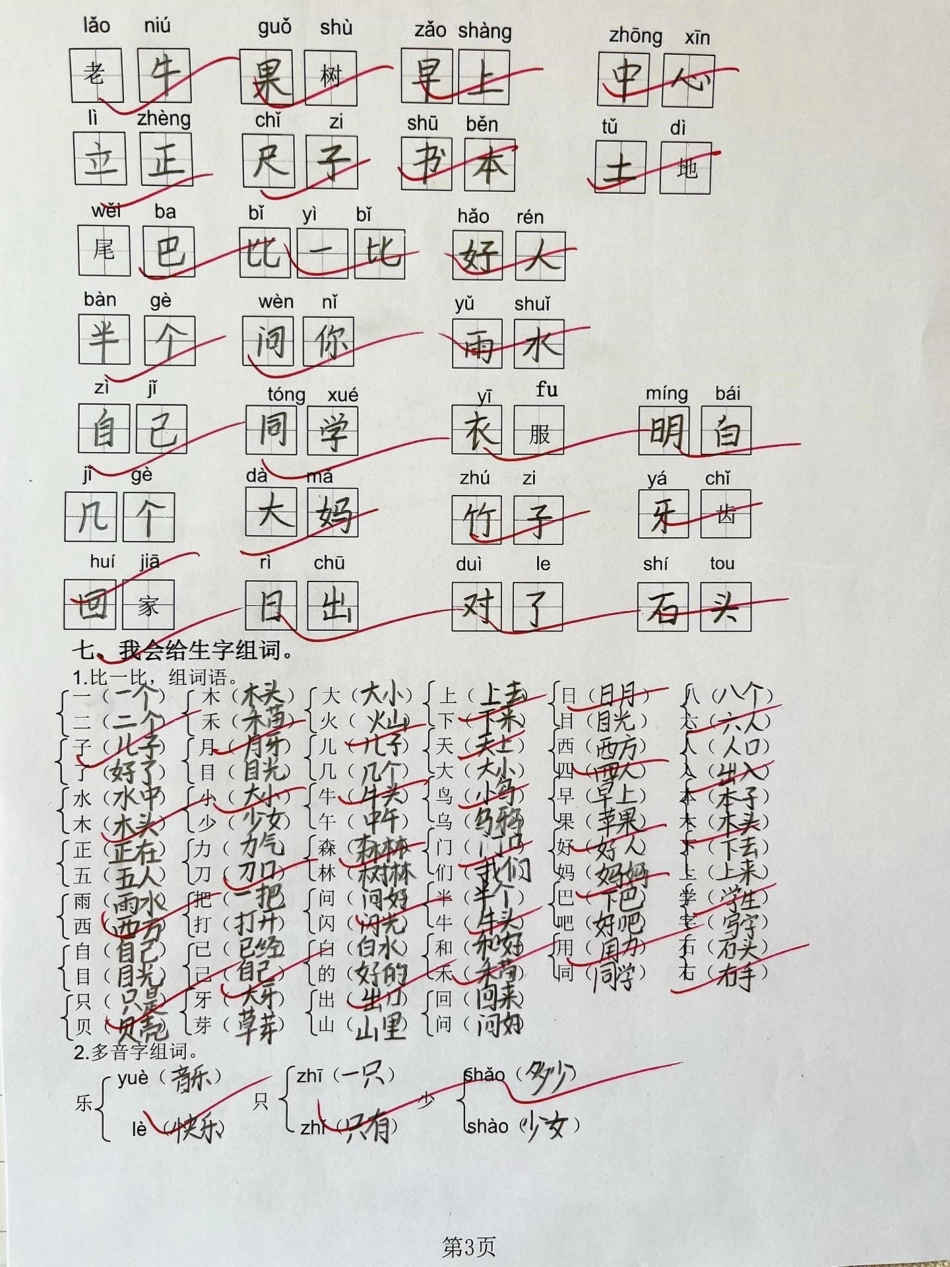 lǎo niú guǒ shù zǎo shàng zhōng xīn
老 牛 果 树 早 上 中 心
lì zhèng chǐ zi shū běn tǔ dì
立 正 尺 子 书 本 土 地
wěi ba bǐ yì bǐ hǎo rén
尾 巴 比 一 比 好 人
bàn gè wèn nǐ yǔ shuǐ
半 个 问 你 雨 水
zì jǐ tóng xué yī fu míng bái
自 己 同 学 衣 服 明 白
jǐ gè dà má zhú zi yá chǐ
几 个 大 妈 竹 子 牙 齿
huí jiā rì chū duì le shí tou
回 家 日 出 对 了 石 头
七、我会给生字组词。
1.比一比，组词语。
一（一个） 木（木头） 大（大小） 上（上去） 日（日月） 八（八个）
二（二个） 禾（禾苗） 火（火山） 下（下来） 目（目光） 六（六人）
子（儿子） 月（月牙） 儿（儿子） 天（天上） 西（西方） 人（人口）
了（好了） 目（目光） 几（几个） 大（大小） 四（四人） 入（出入）
水（水中） 小（大小） 牛（牛头） 鸟（小鸟） 早（早上） 本（本子）
木（木头） 少（少女） 午（中午） 乌（乌鸦） 果（苹果） 木（木头）
正（正在） 力（力气） 森（森林） 门（门口） 好（好人） 下（下去）
五（五人） 刀（刀口） 林（树林） 们（我们） 妈（妈妈） 上（上来）
雨（雨水） 把（一把） 问（问好） 半（半个） 巴（下巴） 学（学生）
西（西方） 打（打开） 闪（闪光） 牛（牛头） 吧（好吧） 字（写字）
自（自己） 已（已经） 白（白水） 和（和好） 用（用力） 石（石头）
目（目光） 己（自己） 的（好的） 禾（禾苗） 同（同学） 右（右手）
只（只是） 牙（大牙） 出（出口） 回（回来）
贝（贝壳） 芽（草芽） 山（山里） 问（问好）
2.多音字组词。
yuè（音乐） zhī（一只） shǎo（多少）
乐 只 少
lè（快乐） zhǐ（只有） shào（少女）
第3页